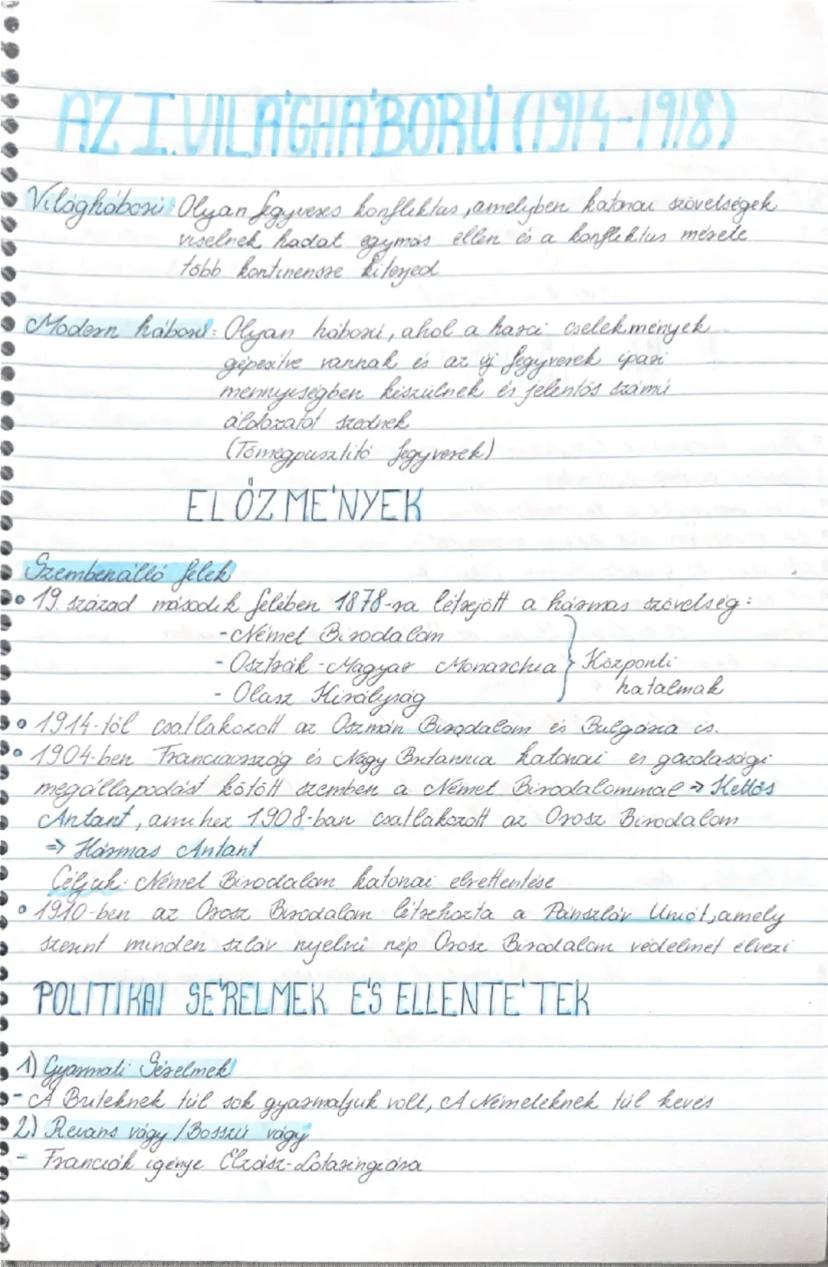 AZ I. VILÁGHÁBORÚ (1914-1918)
Világháború: Olyan fegyveres konfliktus, amelyben katonai szövetségek
viselnek hadat egymás ellen és a konfliktus mérete
több kontinensre kiterjed
Modern háború: Olyan háború, ahol a harci cselekmények
gépesítve vannak és az új fegyverek ipari
mennyiségben készülnek és jelentős számú
áldozatot szednek
(Tömegpusztító fegyverek)
ELŐZMÉNYEK
Szembenálló felek
• 19. század második felében 1878-ra létrejött a hármas szövetség:
- Német Birodalom
- Osztrák-Magyar Monarchia } Központi
- Olasz Királyság hatalmak
• 1914-től csatlakozott az Oszmán Birodalom és Bulgária is.
• 1904-ben Franciaország és Nagy Britannia katonai és gazdasági
megállapodást kötött szemben a Német Birodalommal => Kettős
Antant, amihez 1908-ban csatlakozott az Orosz Birodalom
=> Hármas Antant
Céljuk: Német Birodalom katonai elrettentése
• 1910-ben az Orosz Birodalom létrehozta a Pánszláv Uniót, amely
szerint minden szláv nyelvű nép Orosz Birodalom védelmét élvezi
POLITIKAI SÉRELMEK ÉS ELLENTÉTEK
1) Gyarmati Sérelmek
- A Briteknek túl sok gyarmatjuk volt, A Németeknek túl kevés
2) Revans vágy / Bosszú vágy
- Franciák igénye Elzász-Lotaringiára